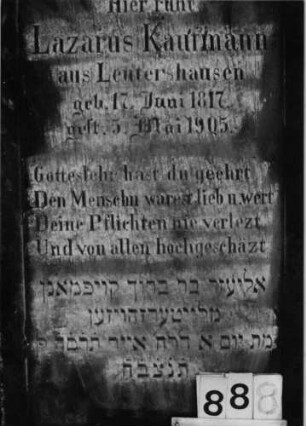 Hier ruht
Lazarus Kaufmann
aus Leutershausen
geb. 17. Juni 1817
gest. 5. Mai 1905.
Gotteslehr hast du geehrt
Den Menschn warest lieb u. wert
Deine Pflichten nie verlezt
Und von allen hochgeschäzt
אליעזר בר ברוך קויפמאנן
מלייטערזהויזען
מת יום א דרח אייר תרסך
תנצבה
88 8